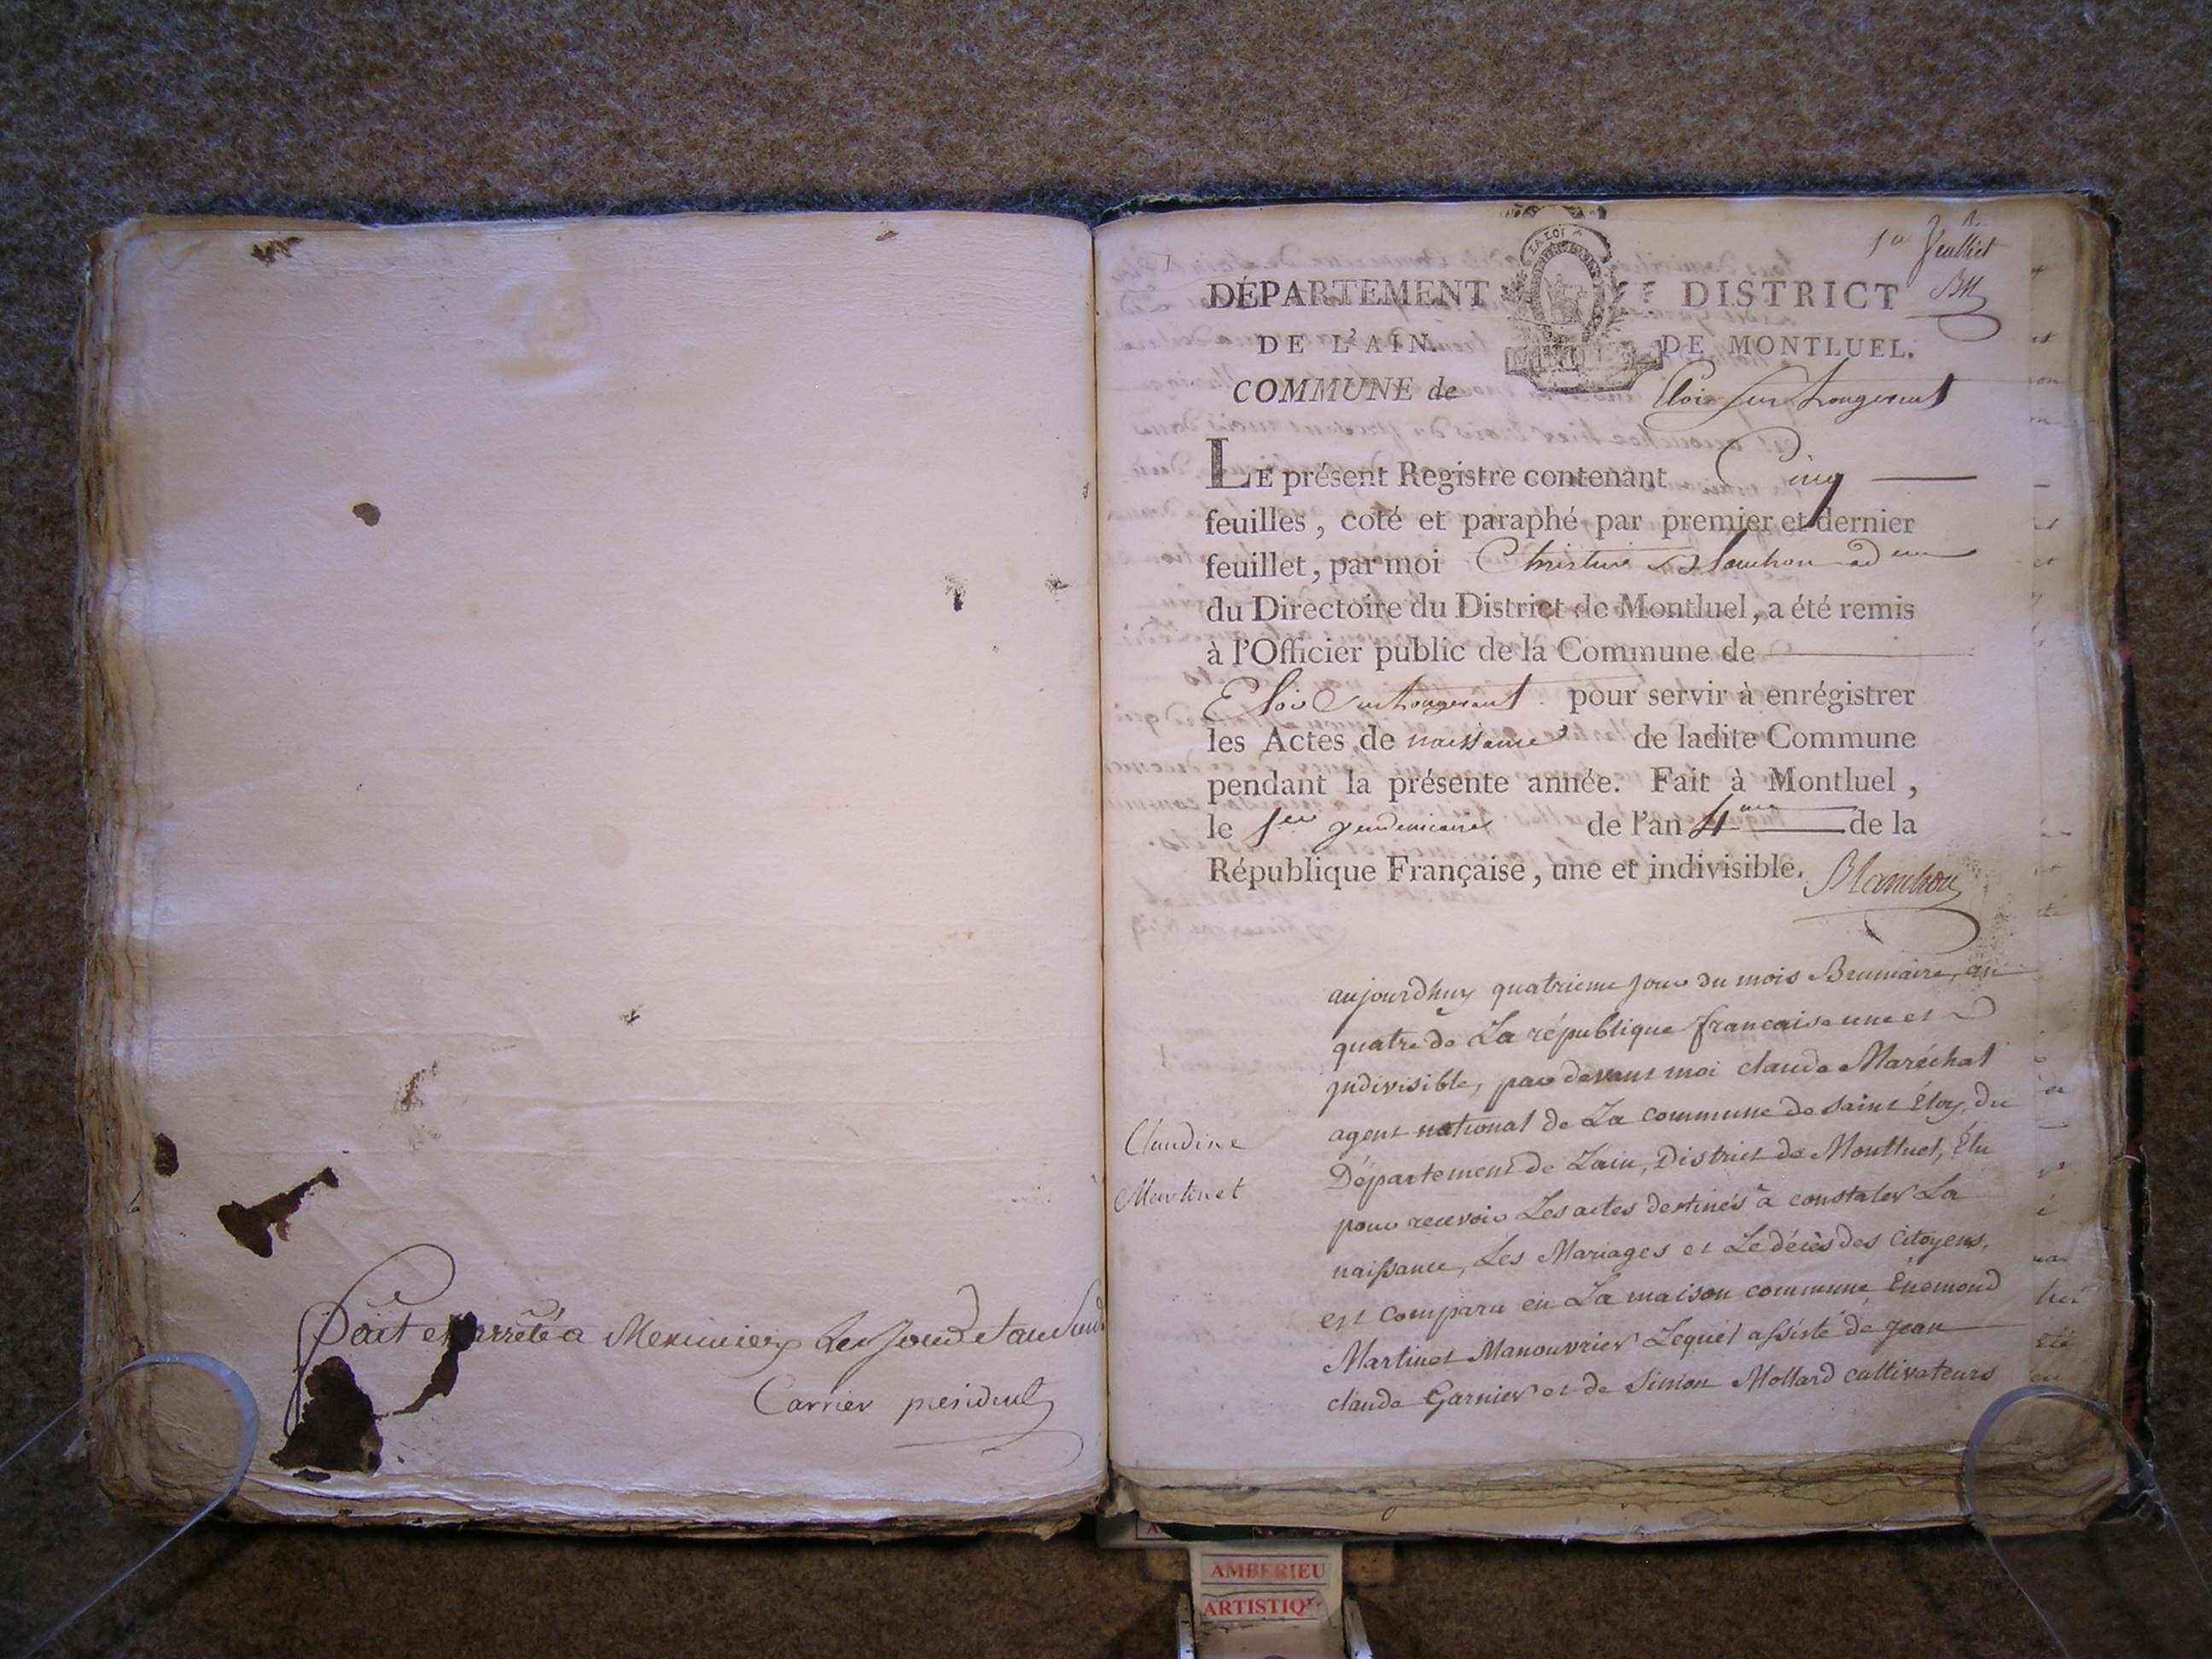 fait et arrêté a Meximieux Les Jour et an Susd
Carrier président
1er feuillet
LA LOI
DÉPARTEMENT DISTRICT
DE L'AIN. DE MONTLUEL.
COMMUNE de Eloi sur
LE présent Registre contenant Cinq
feuilles, coté et paraphé par premier et dernier
feuillet, par moi Blanchon
du Directoire du District de Montluel, a été remis
à l'Officier public de la Commune de
Eloi pour servir à enrégistrer
les Actes de naissance de ladite Commune
pendant la présente année. Fait à Montluel,
le 1er vendemiaire de l'an 4me de la
République Française, une et indivisible. Blanchon
aujourdhuy quatrieme jour du mois Brumaire, an
quatre de La république francaise une et
jndivisible, par devant moi claude Maréchal
agent national de La commune de saint Éloy, du
Claudine
Département de Lain, District de Montluel, Élu
Martinet
pour recevoir Les actes destinés à constater La
naissance, Les Mariages et Le décès des Citoyens,
est comparu en La maison commune Énemond
Martinet Manouvrier Lequel assisté de jean
claude Garnier et de Simon Mollard cultivateurs
AMBERIEU
ARTISTIQ